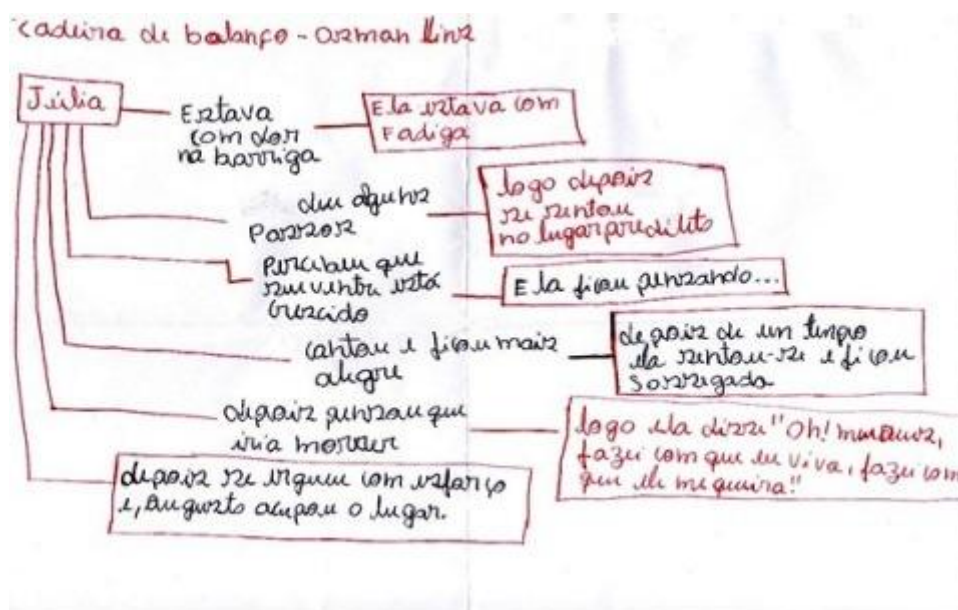 cadeira de balanço - Osman Lins
Júlia
Estava
com dor
na barriga
Ela estava com
Fadiga
deu alguns
Passos
logo depois
se sentou
no lugar predileto
Percebeu que
seu ventre está
crescido
Ela ficou pensando...
cantou e ficou mais
alegre
depois de un tempo
ela sentou-se e ficou
Sossegada
depois pensou que
iria morrer
logo ela disse "Oh! meu Deus,
fazei com que eu viva, fazei com
que ele me queira!"
depois se ergueu com esforço
e, Augusto ocupou o lugar.